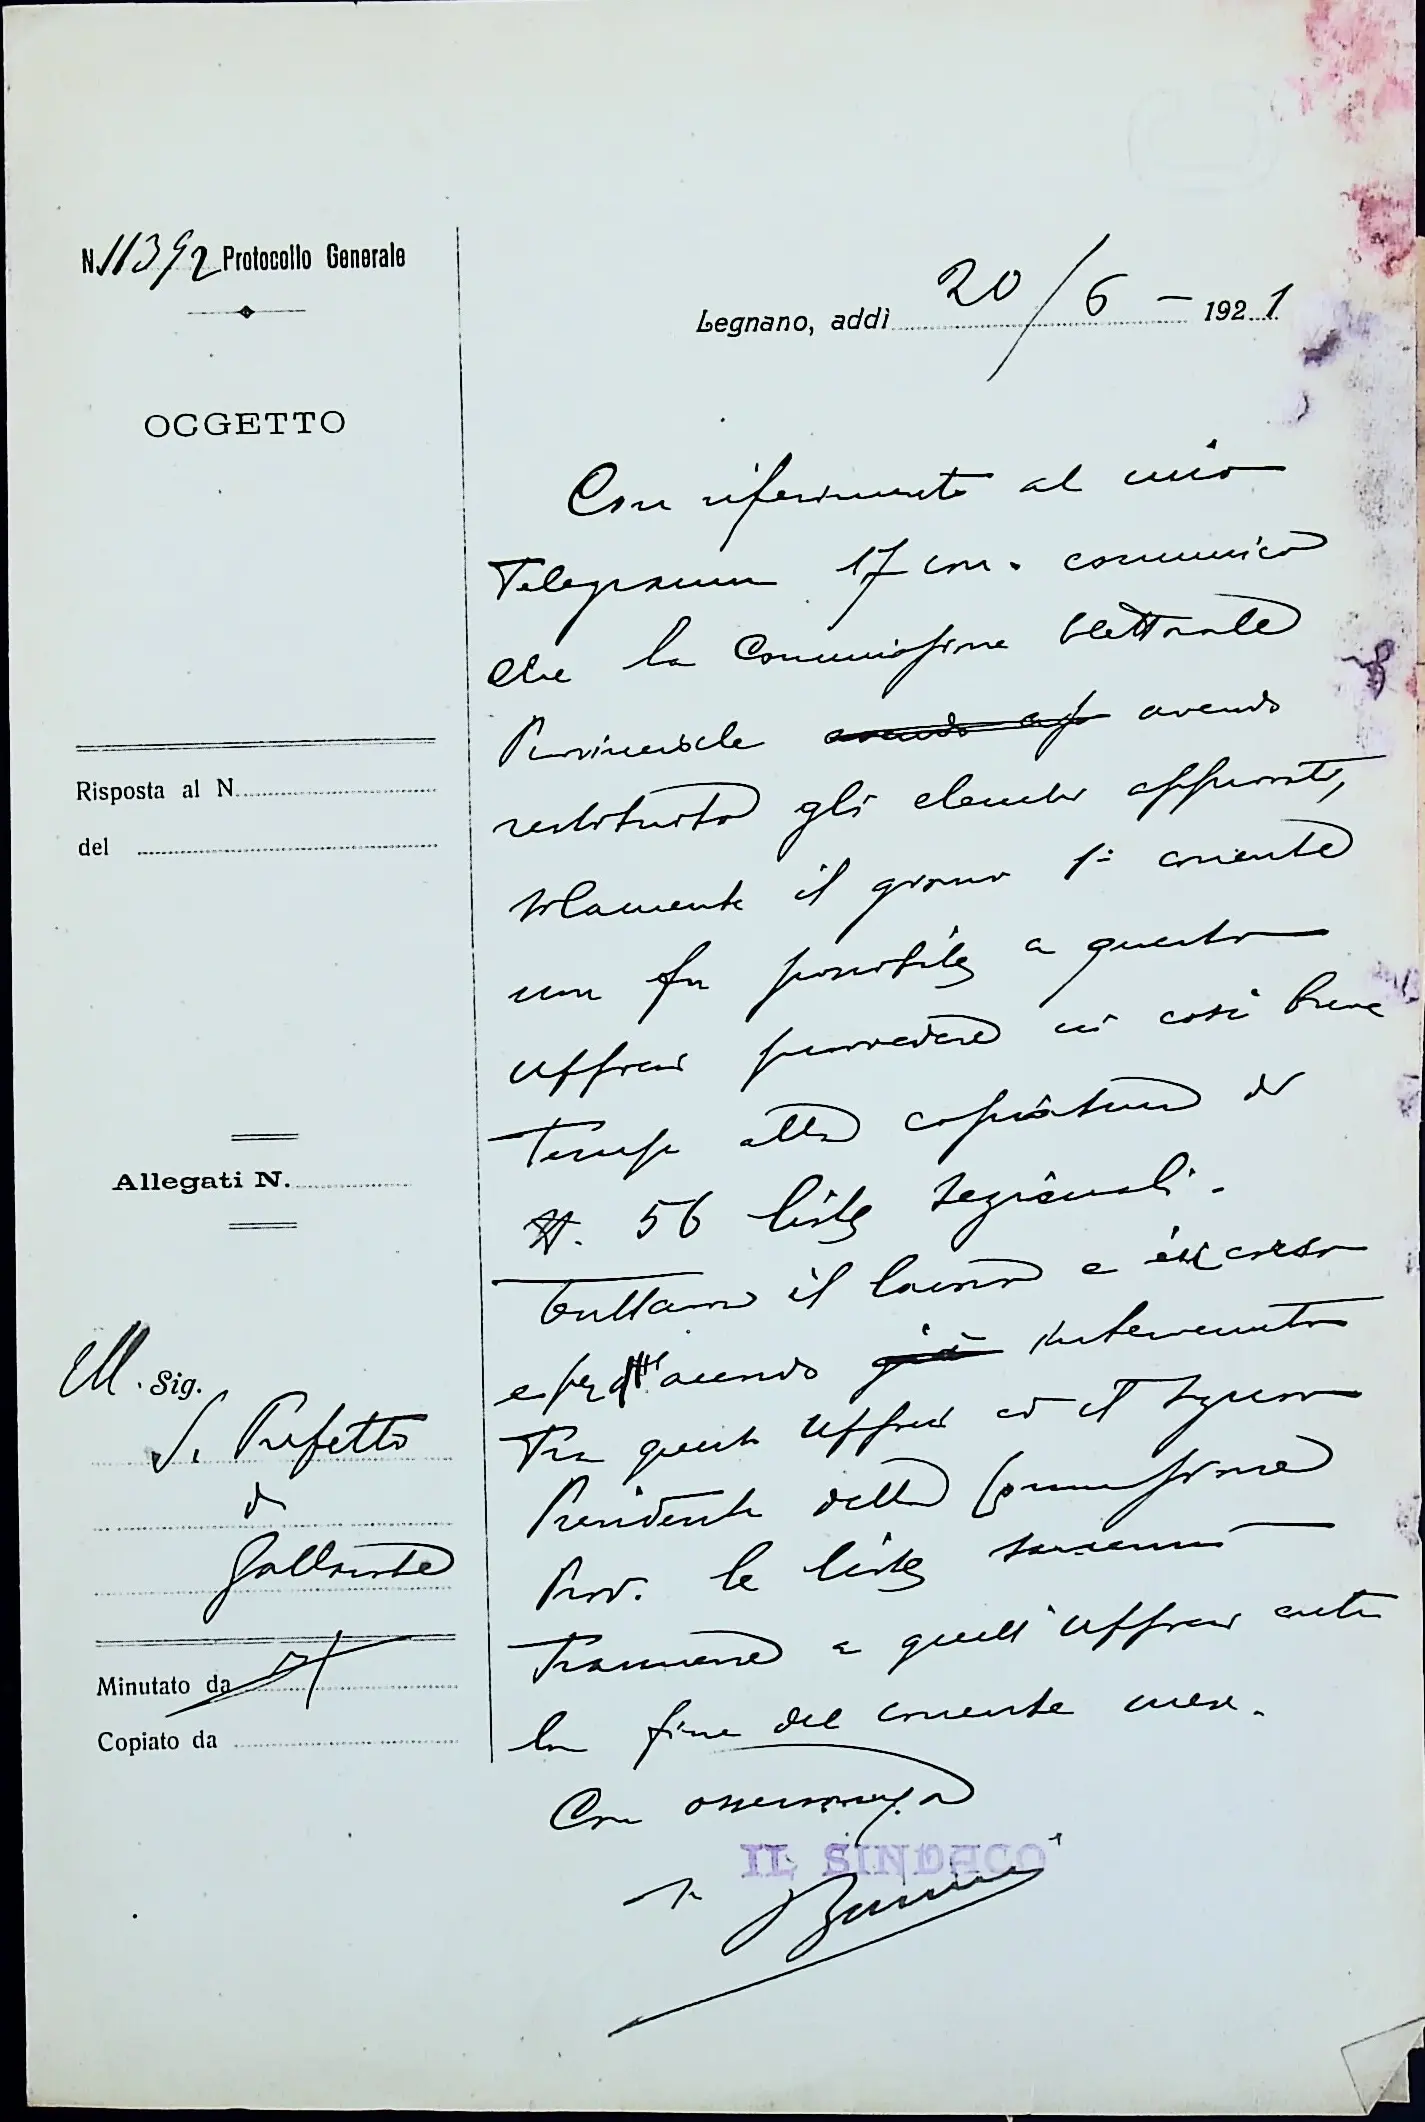 N. 11392 Protocollo Generale
Legnano, addì 20/6 - 1921
OGGETTO
Con riferimento al mio
Telegramma 17 corr. comunico
che la Commissione Elettorale
Provinciale avendo avendo
restituito gli elenchi approvati,
solamente il giorno 1° corrente
non fu possibile a questo
Ufficio provvedere in così breve
tempo alla copiatura di
N. 56 liste sezionali.
Tuttavia il lavoro è in corso
e avendo già intervenuto
tra questo Ufficio ed il Signor
Presidente della Commissione
Prov. le liste saranno
trasmesse a quell'Ufficio entro
la fine del corrente mese.
Con osservanza
IL SINDACO
Risposta al N.
del
Allegati N.
Ill. Sig.
S. Prefetto
di
Gallarate
Minutato da
Copiato da